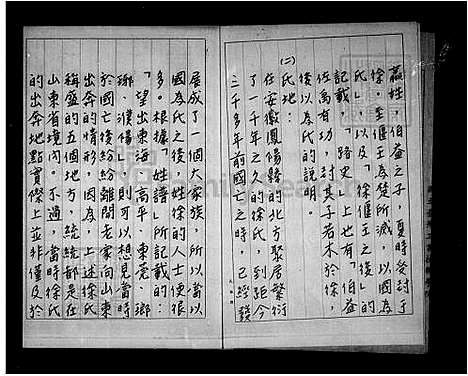 嬴姓，伯益之子，夏時受封于
徐，至偃王為楚所滅，以國為
氏」，以及「徐偃王之後」的
記載，「路史」上也有「伯益
佐禹有功，封其子若木於徐，
後以為氏的說明。
(二)氏地：
在安徽鳳陽縣的北方聚居繁衍
了一千年之久的徐氏，到距今
三千多年前國亡之時，已經發
展成了一個大家族，所以當以
國為氏之後，姓徐的人士便很
多。根據「姓譜」所記載的：
「望出東海、高平、東莞、瑯
琊、濮陽」，則可以想見當時
於國亡後紛紛離開老家向山東
出奔的情形，因為，上述徐氏
稱盛的五個地方，統統都是在
山東省境內。不過，當時徐氏
的出奔地點實際上並非僅及於